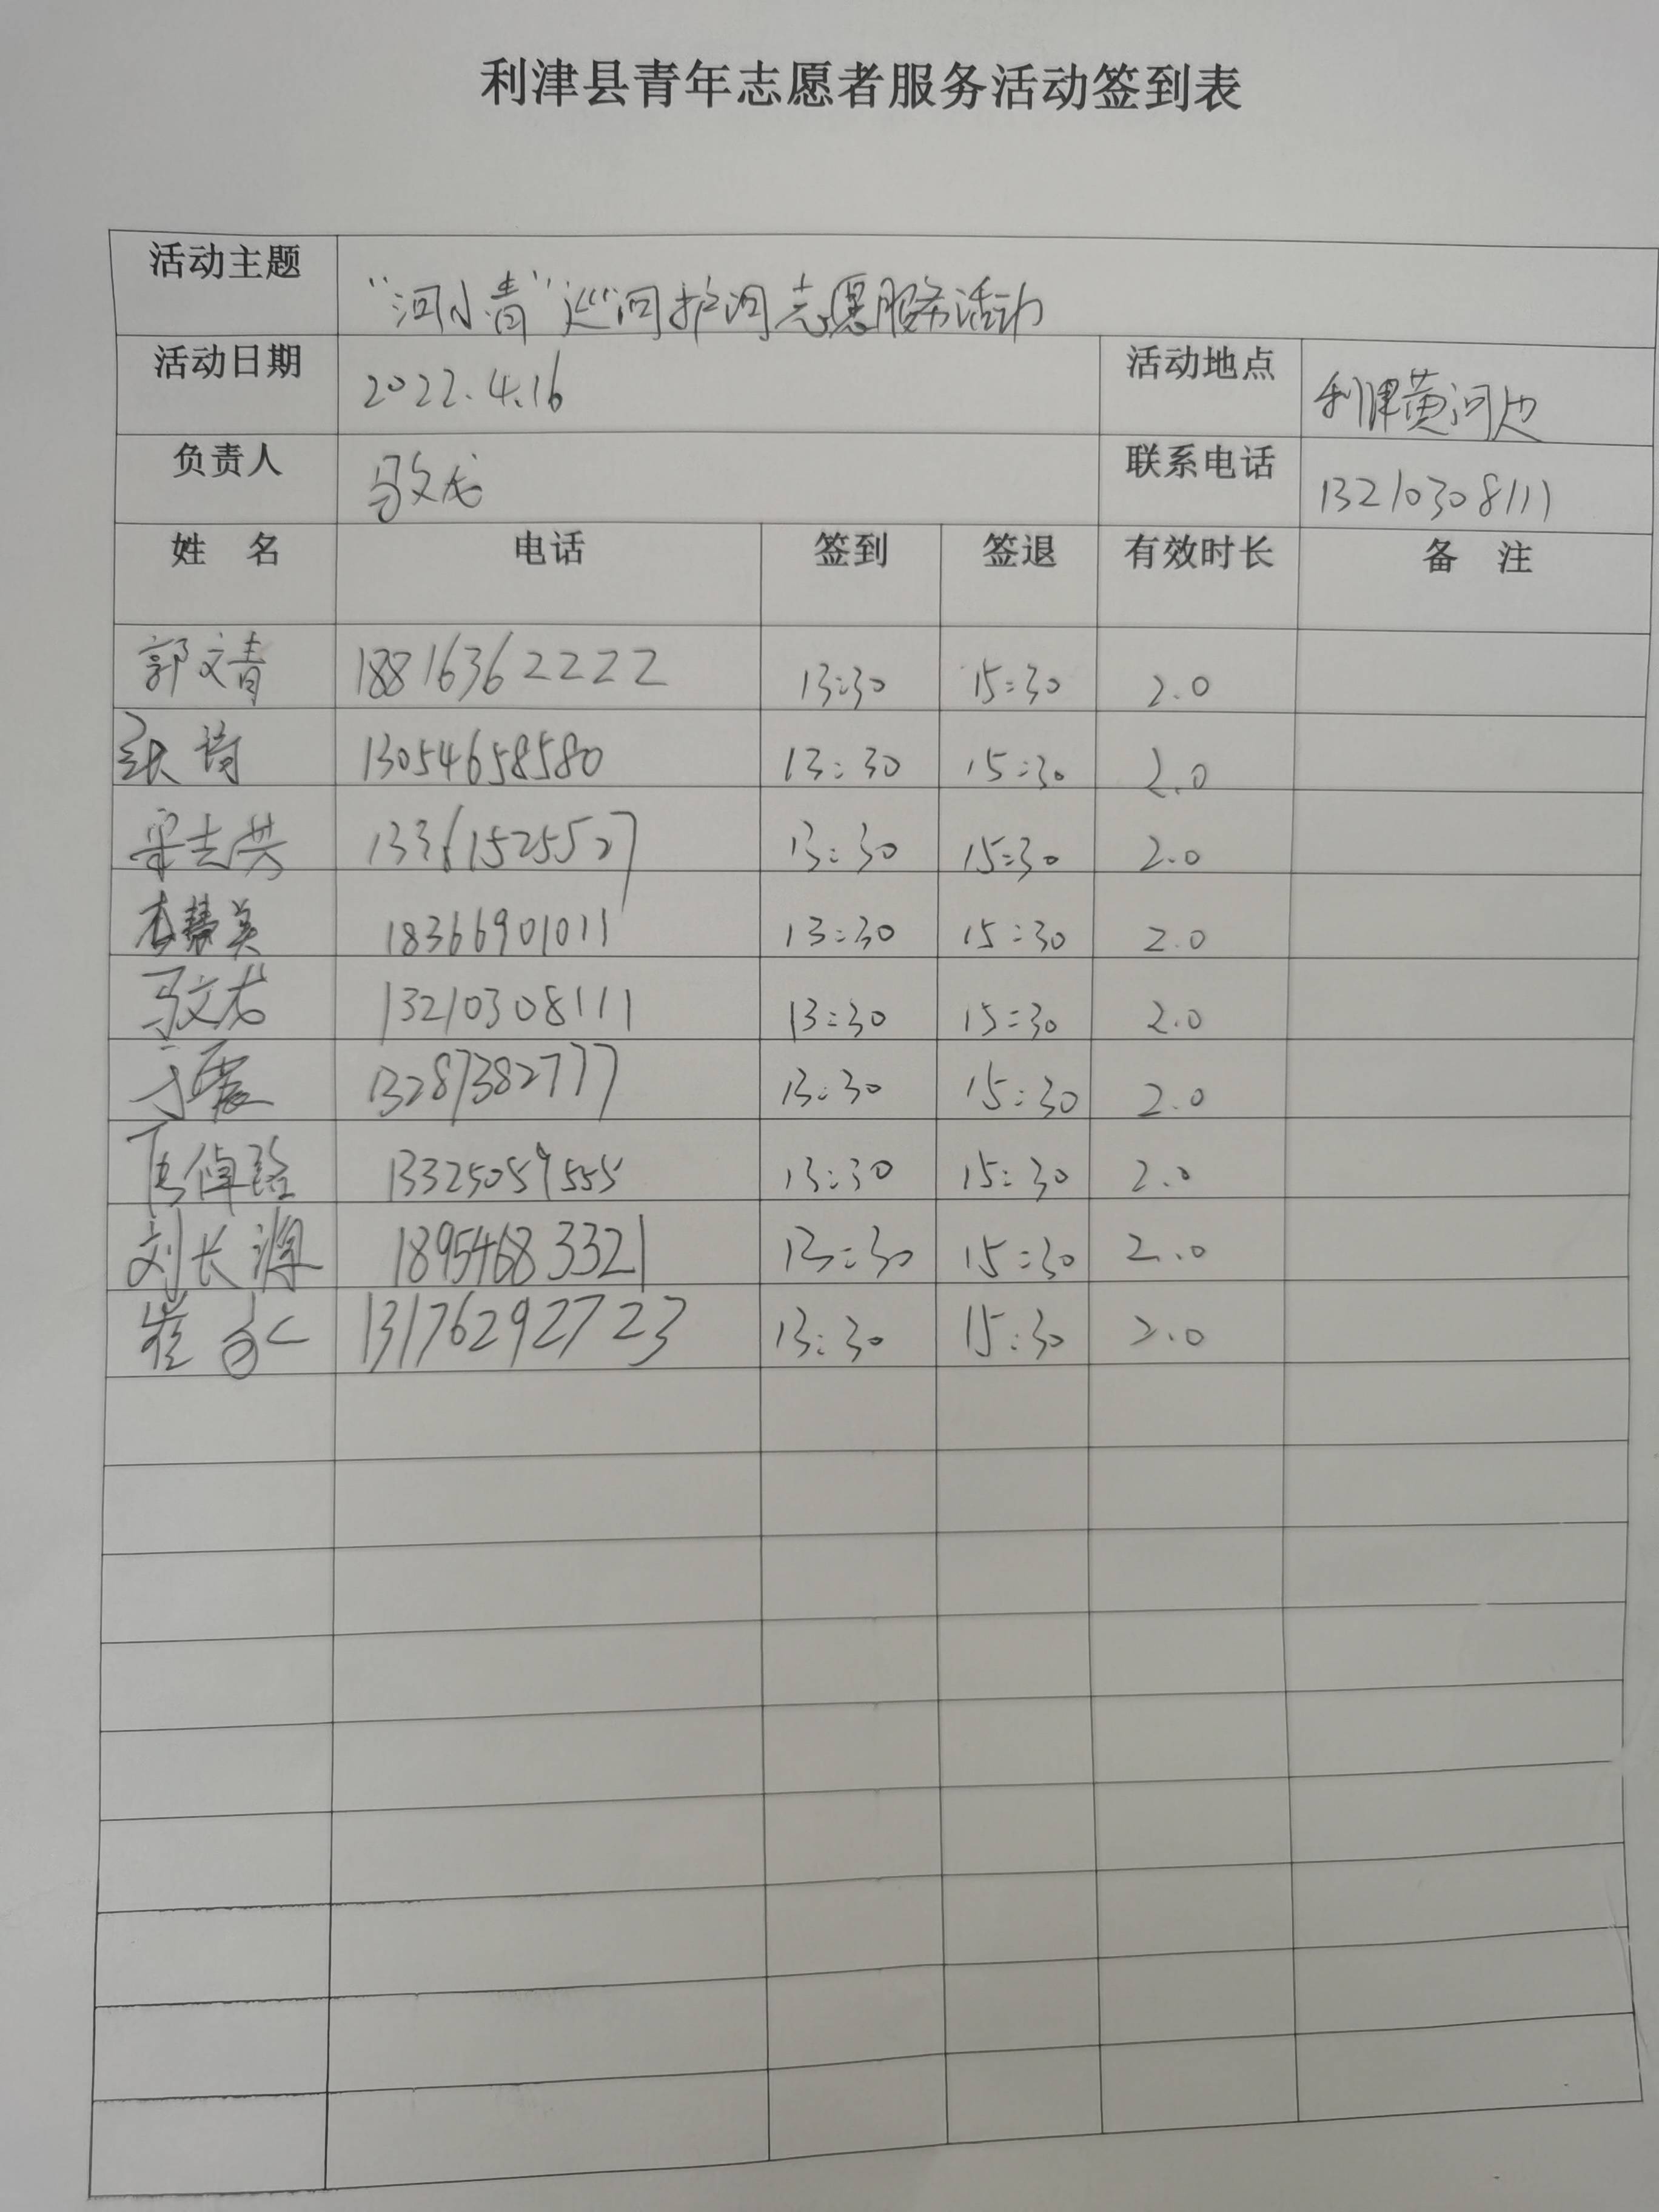 利津县青年志愿者服务活动签到表
活动主题 "河小青"巡河护河志愿服务活动
活动日期 2022.4.16 活动地点 利津黄河边
负责人 马文龙 联系电话 13210308111
姓 名 电话 签到 签退 有效时长 备 注
郭文青 18816362222 13:30 15:30 2.0
张诗 13054658580 13:30 15:30 2.0
13:30 15:30 2.0
18366901011 13:30 15:30 2.0
马文龙 13210308111 13:30 15:30 2.0
于震 13287382777 13:30 15:30 2.0
13325059555 13:30 15:30 2.0
刘长源 18954683321 13:30 15:30 2.0
崔 13176292723 13:30 15:30 2.0